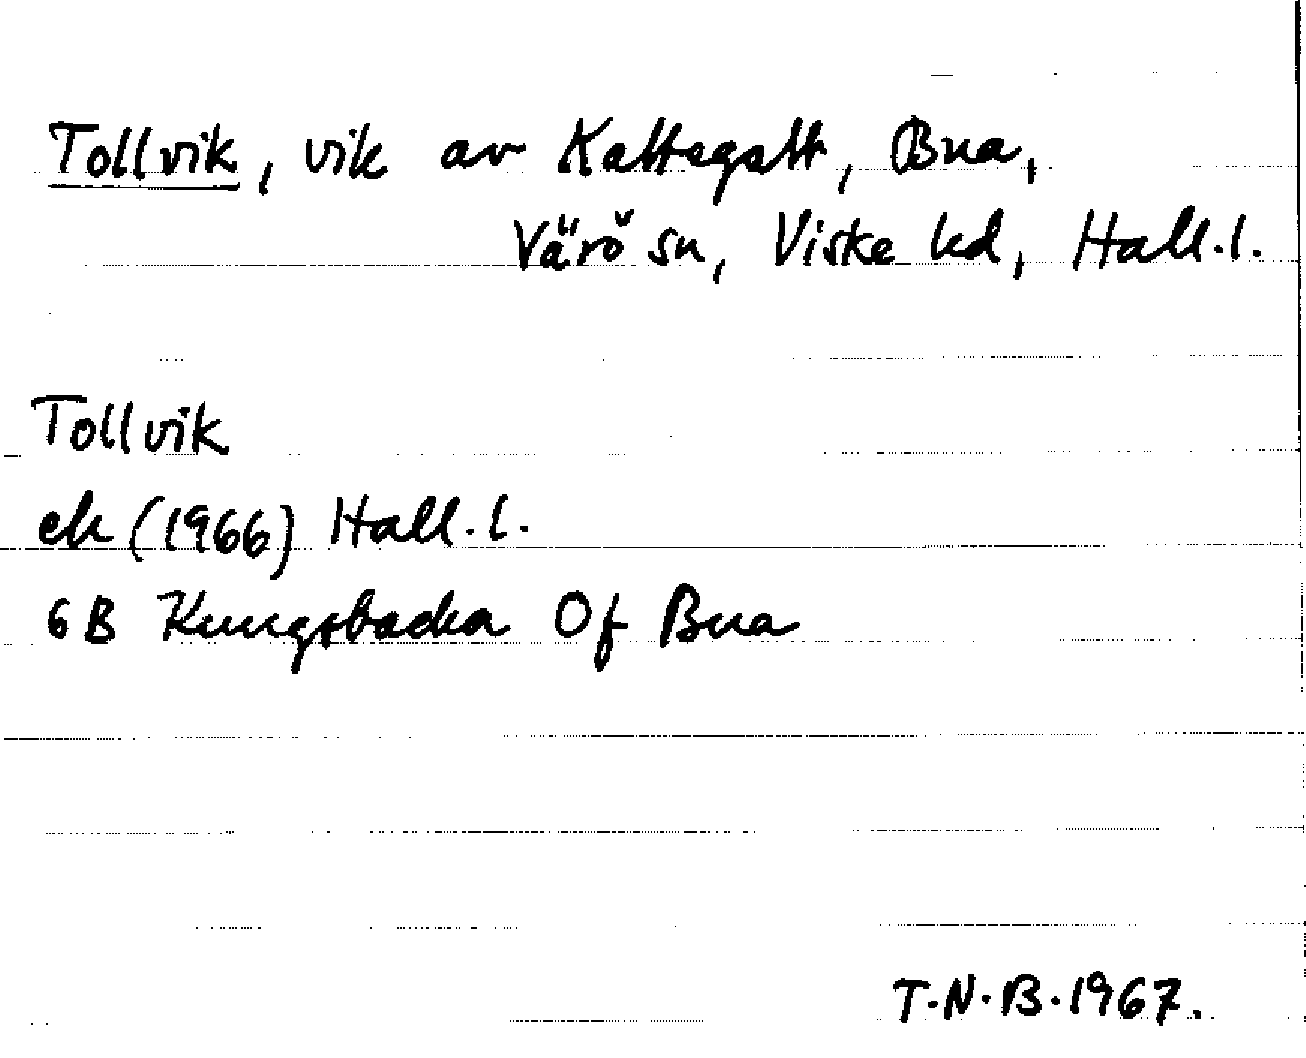 Tollvik, vik av Kattegatt, Bua,
Värö sn, Viske hd, Hall.l.
Tollvik
ek (1966) Hall.l.
6B Kungsbacka Of Bua
T.N.B.1967.